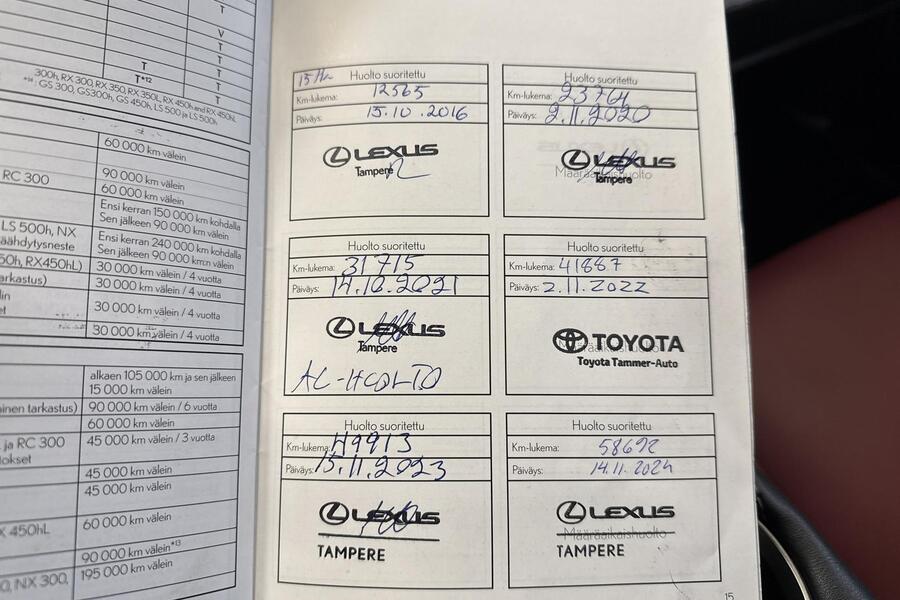 T
V
T
T
T
T*12
T
T
300h, RX 300, RX 350, RX 350L, RX 450h and RX 450hL
*14 : GS 300, GS300h, GS 450h, LS 500 ja LS 500h
60 000 km välein
90 000 km välein
RC 300
60 000 km välein
Ensi kerran 150 000 km kohdalla
Sen jälkeen 90 000 km välein
LS 500h, NX
Ensi kerran 240 000 km kohdalla
äähdytysneste
Sen jälkeen 90 000 km:n välein
50h, RX450hL)
30 000 km välein / 4 vuotta
arkastus)
30 000 km välein / 4 vuotta
lin
30 000 km välein / 4 vuotta
et
30 000 km välein / 4 vuotta
alkaen 105 000 km ja sen jälkeen
15 000 km välein
inen tarkastus)
90 000 km välein / 6 vuotta
60 000 km välein
ja RC 300
45 000 km välein / 3 vuotta
okset
45 000 km välein
45 000 km välein
X 450hL
60 000 km välein
90 000 km välein*13
0, NX 300,
195 000 km välein
Huolto suoritettu
Km-lukema: 12565
Päiväys: 15.10.2016
LEXUS
Tampere
Huolto suoritettu
Km-lukema: 23764
Päiväys: 2.11.2020
LEXUS
Määräaikaishuolto
Tampere
Huolto suoritettu
Km-lukema: 31715
Päiväys: 14.10.2021
LEXUS
Tampere
AC-HUOLTO
Huolto suoritettu
Km-lukema: 41887
Päiväys: 2.11.2022
TOYOTA
Määräaikaishuolto
Toyota Tammer-Auto
Huolto suoritettu
Km-lukema: 49913
Päiväys: 15.11.2023
LEXUS
TAMPERE
Huolto suoritettu
Km-lukema: 58692
Päiväys: 14.11.2024
LEXUS
Määräaikaishuolto
TAMPERE
15